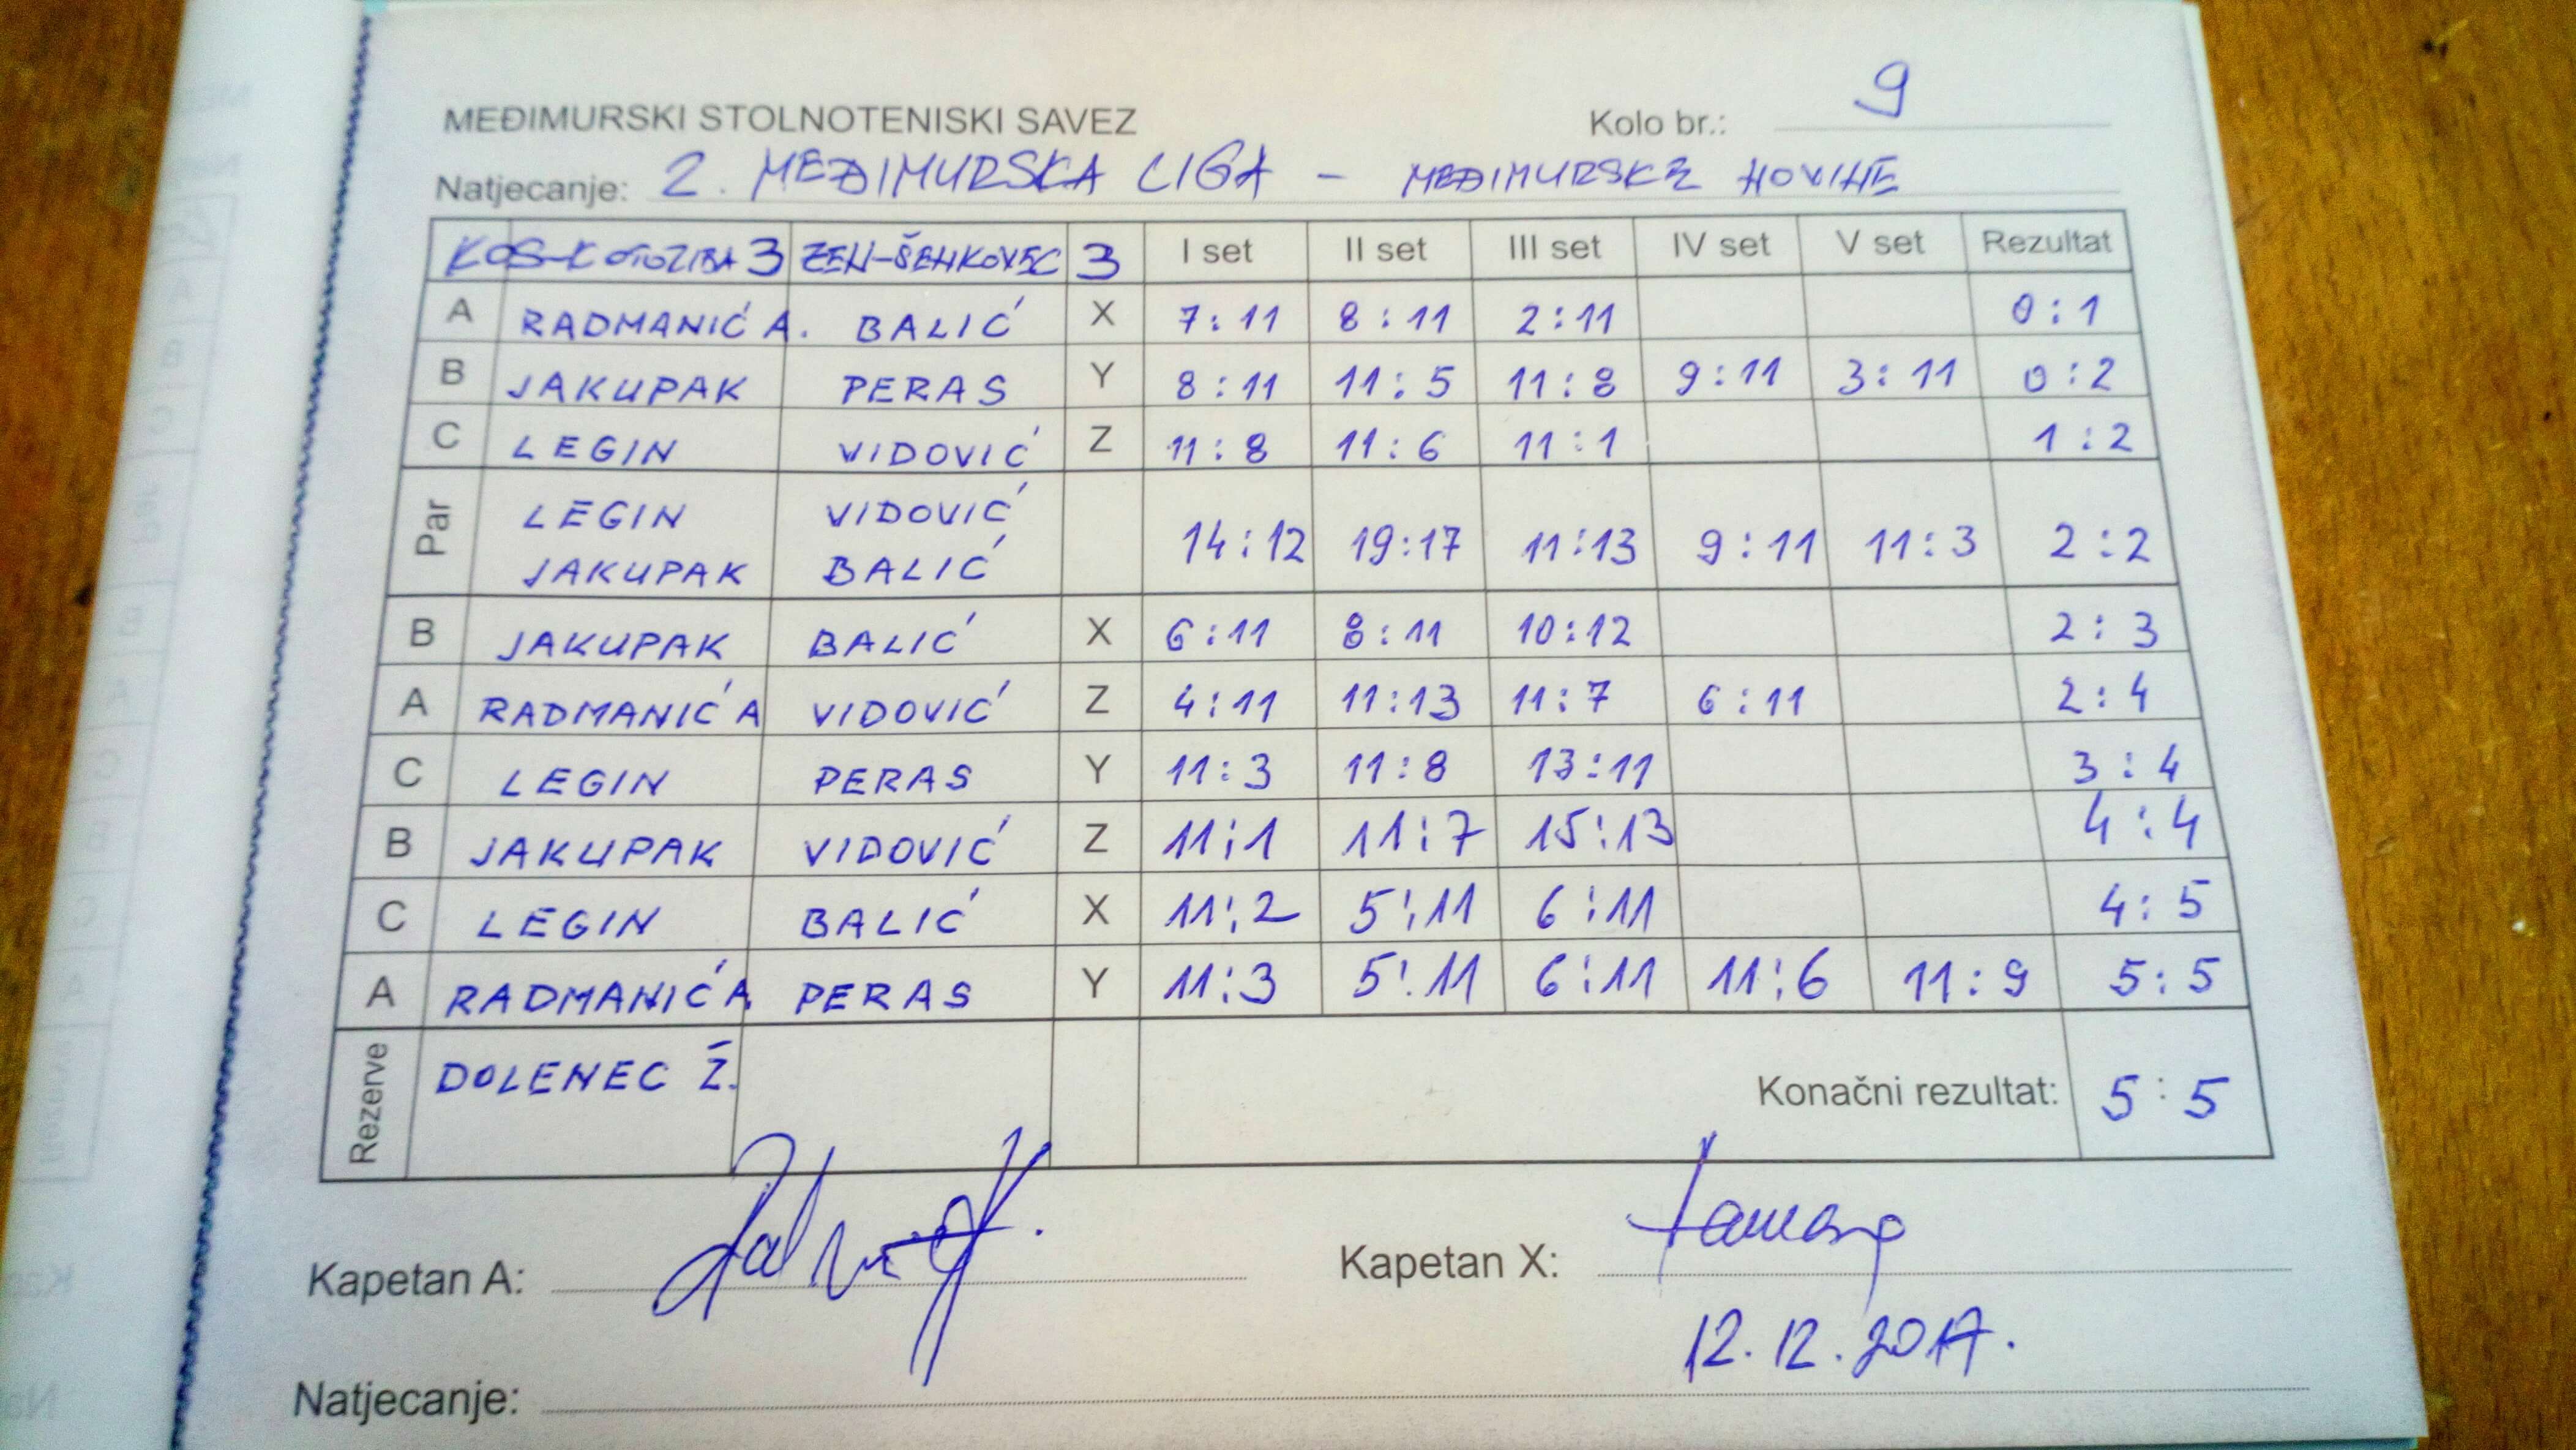 MEĐIMURSKI STOLNOTENISKI SAVEZ
Kolo br.: 9
Natjecanje: 2. MEĐIMURSKA LIGA - MEĐIMURSKE NOVINE
3 ZEN-ŠENKOVEC 3 I set II set III set IV set V set Rezultat
A RADMANIĆ A. BALIĆ X 7:11 8:11 2:11 0:1
B JAKUPAK PERAS Y 8:11 11:5 11:8 9:11 3:11 0:2
C LEGIN VIDOVIĆ Z 11:8 11:6 11:1 1:2
Par LEGIN VIDOVIĆ
JAKUPAK BALIĆ 14:12 19:17 11:13 9:11 11:3 2:2
B JAKUPAK BALIĆ X 6:11 8:11 10:12 2:3
A RADMANIĆ A VIDOVIĆ Z 4:11 11:13 11:7 6:11 2:4
C LEGIN PERAS Y 11:3 11:8 13:11 3:4
B JAKUPAK VIDOVIĆ Z 11:1 11:7 15:13 4:4
C LEGIN BALIĆ X 11:2 5:11 6:11 4:5
A RADMANIĆ A PERAS Y 11:3 5:11 6:11 11:6 11:9 5:5
Rezerve DOLENEC Ž. Konačni rezultat: 5:5
Kapetan A: Kapetan X:
12.12.2017.
Natjecanje: